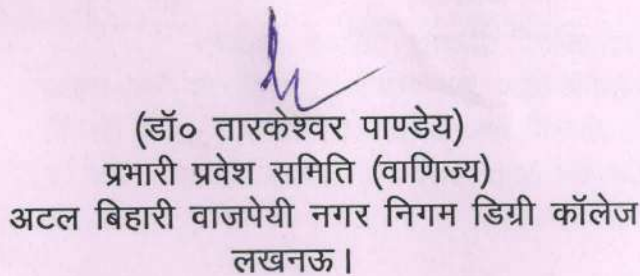 (डॉ० तारकेश्वर पाण्डेय)
प्रभारी प्रवेश समिति (वाणिज्य)
अटल बिहारी वाजपेयी नगर निगम डिग्री कॉलेज
लखनऊ।